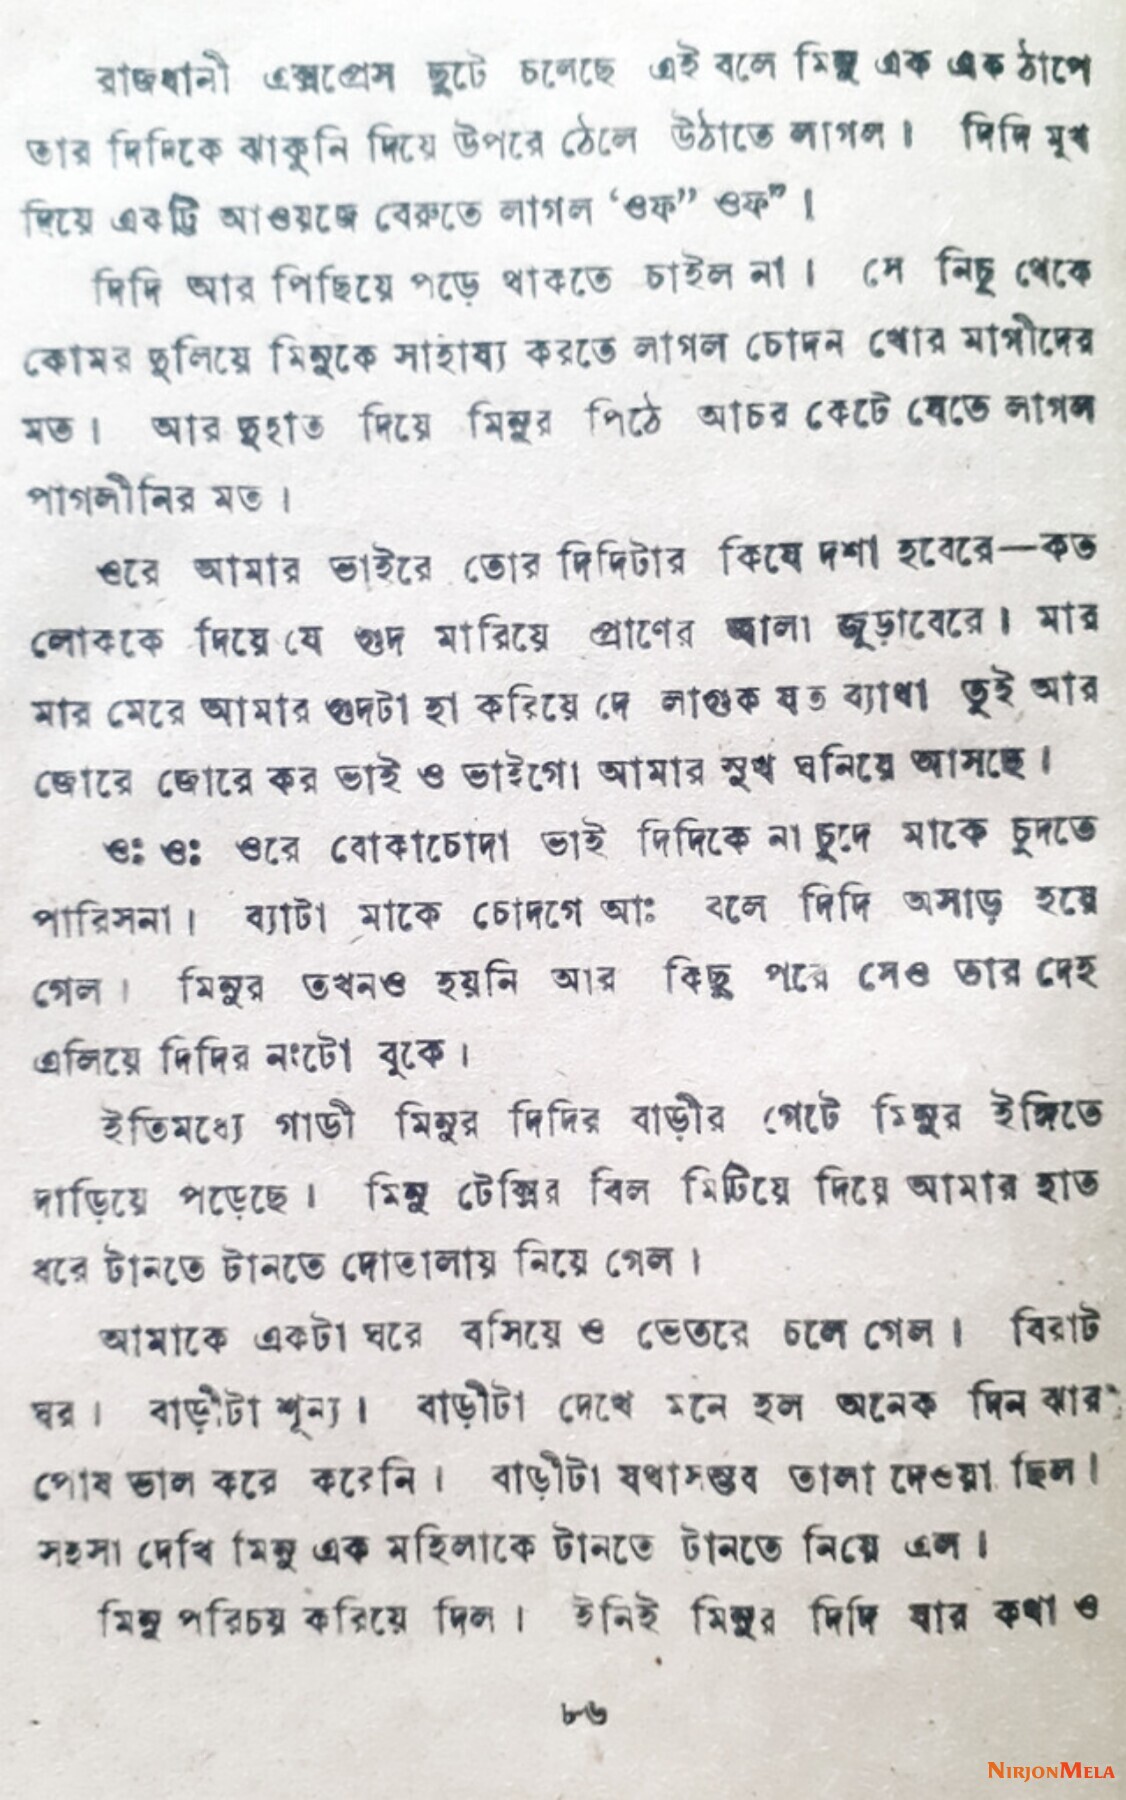 রাজধানী এক্সপ্রেস ছুটে চলেছে এই বলে মিনু এক এক ঠাপে
তার দিদিকে ঝাকুনি দিয়ে উপরে ঠেলে উঠাতে লাগল। দিদি মুখ
দিয়ে একটি আওয়াজ বেরুতে লাগল ‘ওফ” ওফ”।
দিদি আর পিছিয়ে পড়ে থাকতে চাইল না। সে নিচু থেকে
কোমর দুলিয়ে মিনুকে সাহায্য করতে লাগল চোদন খোর মাগীদের
মত। আর দুহাত দিয়ে মিনুর পিঠে আচর কেটে যেতে লাগল
পাগলীনির মত।
ওরে আমার ভাইরে তোর দিদিটার কিযে দশা হবেরে—কত
লোককে দিয়ে যে গুদ মারিয়ে প্রাণের জ্বালা জুড়াবেরে। মার
মার মেরে আমার গুদটা হা করিয়ে দে লাগুক যত ব্যাথা তুই আর
জোরে জোরে কর ভাই ও ভাইগো আমার সুখ ঘনিয়ে আসছে।
ওঃ ওঃ ওরে বোকাচোদা ভাই দিদিকে না চুদে মাকে চুদতে
পারিসনা। ব্যাটা মাকে চোদগে আঃ বলে দিদি অসাড় হয়ে
গেল। মিনুর তখনও হয়নি আর কিছু পরে সেও তার দেহ
এলিয়ে দিদির নংটো বুকে।
ইতিমধ্যে গাড়ী মিনুর দিদির বাড়ীর গেটে মিনুর ইঙ্গিতে
দাড়িয়ে পড়েছে। মিনু টেক্সির বিল মিটিয়ে দিয়ে আমার হাত
ধরে টানতে টানতে দোতালায় নিয়ে গেল।
আমাকে একটা ঘরে বসিয়ে ও ভেতরে চলে গেল। বিরাট
ঘর। বাড়ীটা শূন্য। বাড়ীটা দেখে মনে হল অনেক দিন ঝার
পোষ ভাল করে করেনি। বাড়ীটা যথাসম্ভব তালা দেওয়া ছিল।
সহসা দেখি মিনু এক মহিলাকে টানতে টানতে নিয়ে এল।
মিনু পরিচয় করিয়ে দিল। ইনিই মিনুর দিদি যার কথা ও
৮৬
NIRJONMELA